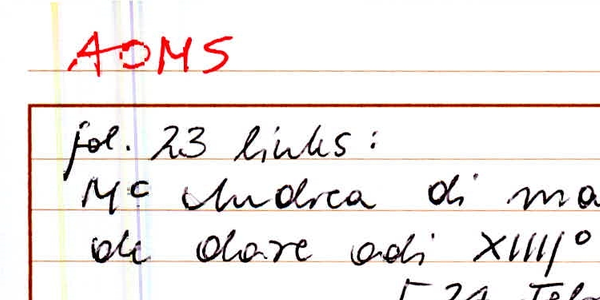 AOMS
fol. 23 links:
Mc Andrea di ma
de dare adi XIIII°